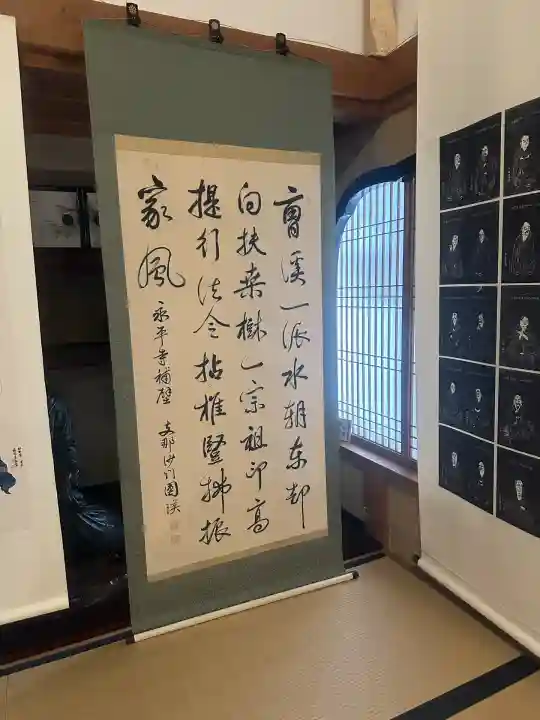 曹溪一派水朝东却
向扶桑樹一宗祖印高
提行法令拈椎豎拂振
家風
永平寺補壁 支那沙门圆瑛